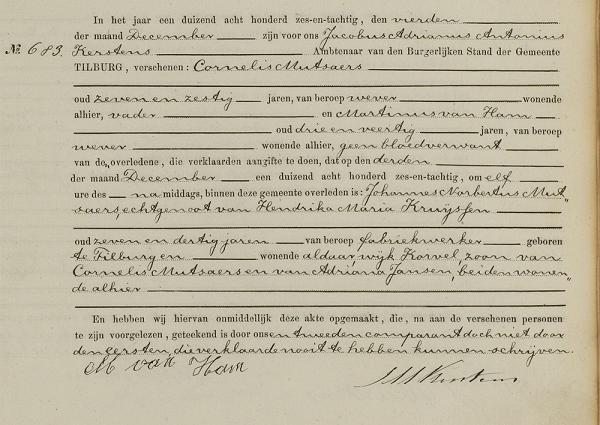 In het jaar een duizend acht honderd zes-en-tachtig, den vierden
der maand December zijn voor ons Jacobus Adrianus Antonius
№ 683. Kerstens Ambtenaar van den Burgerlijken Stand der Gemeente
TILBURG, verschenen: Cornelis Mutsaers
oud zeven en zestig jaren, van beroep wever wonende
alhier, vader en Martinus van Ham
oud drie en veertig jaren, van beroep
wever wonende alhier, geen bloedverwant
van de„ overledene, die verklaarden aangifte te doen, dat op den derden
der maand December een duizend acht honderd zes-en-tachtig, om elf
ure des na middags, binnen deze gemeente overleden is: Johannes Norbertus Mut„
saers echtgenoot van Hendrika Maria Kruijssen
oud zeven en dertig jaren van beroep fabriekwerker geboren
te Tilburg en wonende aldaar, wijk Korvel, zoon van
Cornelis Mutsaers en van Adriana Jansen, beiden wonen„
de alhier
En hebben wij hiervan onmiddelijk deze akte opgemaakt, die, na aan de verschenen personen
te zijn voorgelezen, geteekend is door ons en tweeden comparant doch niet door
den eersten, die verklaarde nooit te hebben kunnen schrijven.
M van Ham